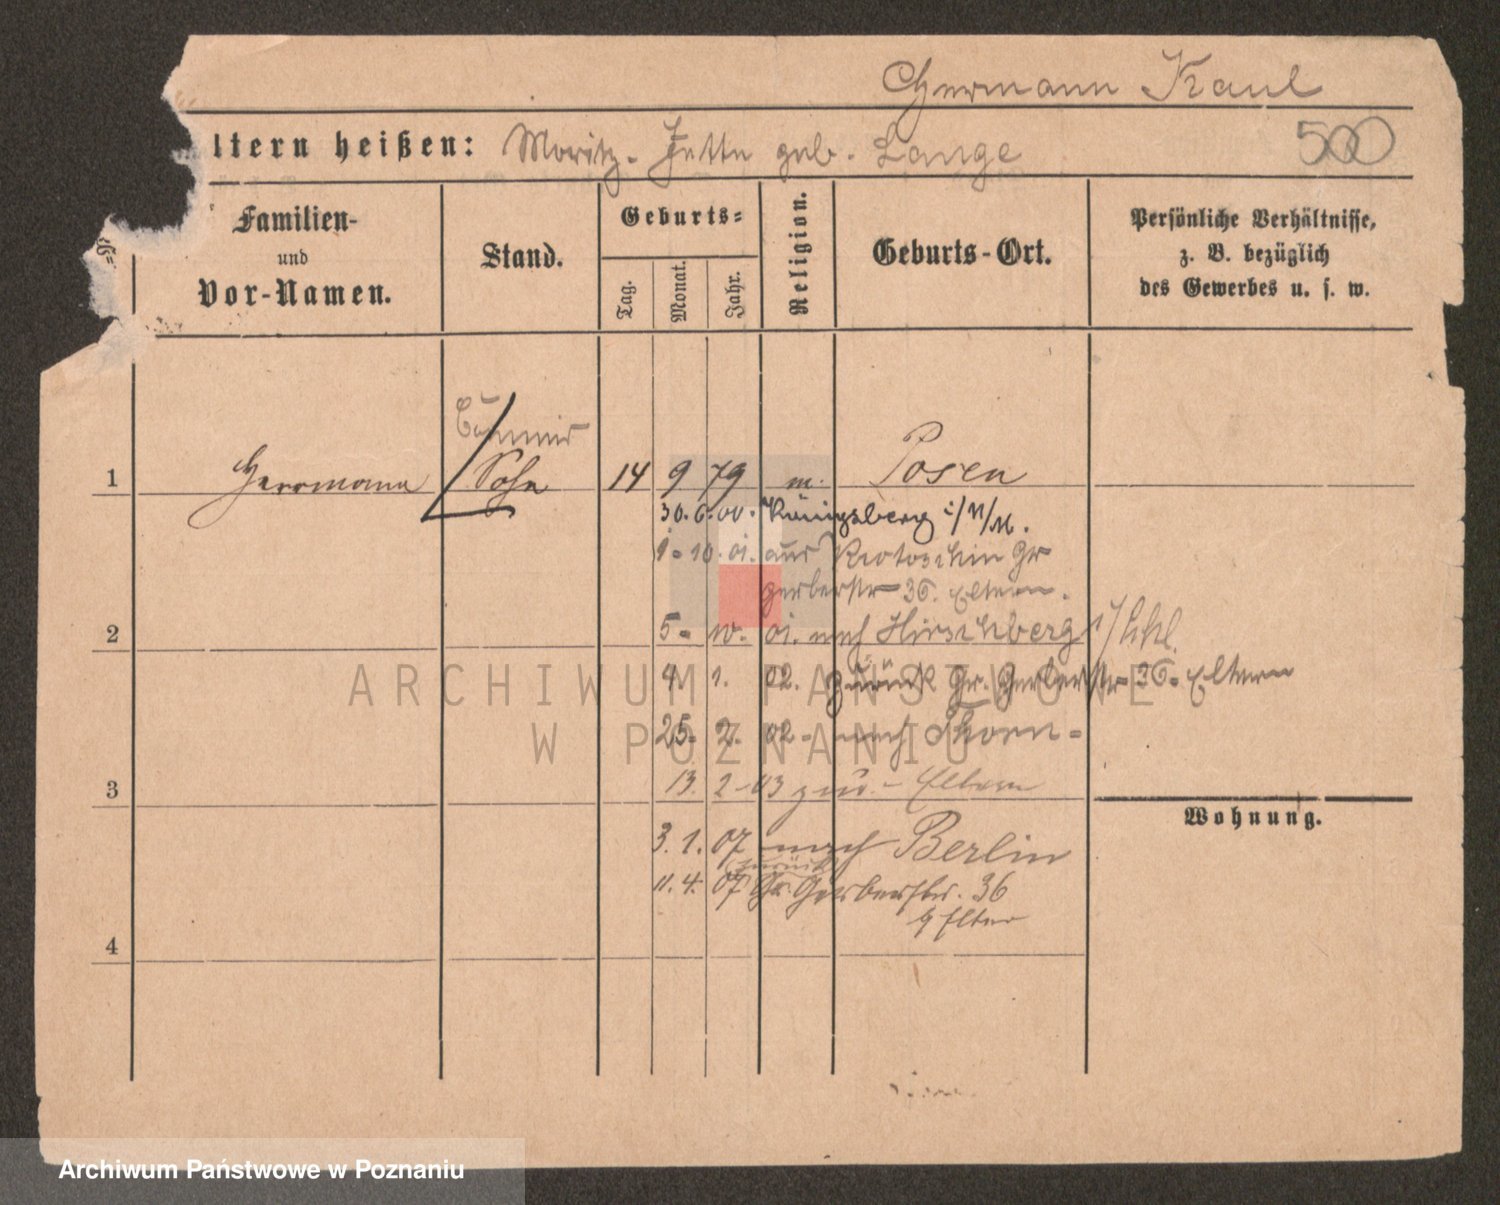 Hermann Kaul
ltern heißen: Moritz - Jette geb. Lange 500
Familien-
und
Vor-Namen.
Stand.
Geburts-
Tag.
Monat.
Jahr.
Religion.
Geburts-Ort.
Persönliche Verhältnisse,
z. B. bezüglich
des Gewerbes u. s. w.
Commis
1 Herrmann Sohn 14 9 79 m. Posen
30. 6. 00. Königsberg i/N/M.
1 - 10. 01. aus Krotoschin Gr
gerberstr 36. Eltern.
2 5 - 10. 01. nach Hirschberg i/Schl.
4. 1. 02. zurück Gr. Gerberstr 36. Eltern
25. 2. 02 - nach Thorn -
3 13. 2 - 03 zur. - Eltern
Wohnung.
3. 1. 07 nach Berlin
zurück
11. 4. 07 Gr. Gerberstr. 36
4 Elter
ARCHIWUM PAŃSTWOWE
W POZNANIU
Archiwum Państwowe w Poznaniu